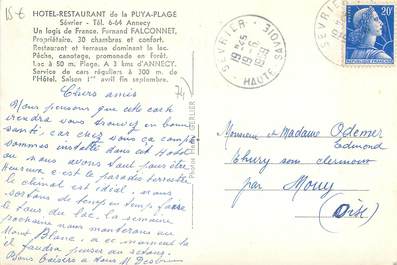 15€
HOTEL-RESTAURANT de la PUYA-PLAGE
Sévrier - Tél. 6-64 Annecy
Un logis de France. Fernand FALCONNET,
Propriétaire. 30 chambres et confort.
Restaurant et terrasse dominant le lac.
Pêche, canotage, promenade en forêt.
Lac à 50 m. Plage. A 3 kms d'ANNECY.
Service de cars réguliers à 300 m. de
l'Hôtel. Saison 1er avril fin septembre.
74
Chers amis
Nous pensons que cette carte
viendra vous trouver en bonne
santé, car chez nous ça
sommes installé dans cet Hôtel
ou nous avons tout pour être
heureux c'est le paradis terrestre
le climat est idéal, nous
sortons de temp en temp faire
le tour du lac, la semaine
prochaine nous monterons au
Mont Blanc, a ce moment là
il faudra penser au retour.
Bons Baisers a tous
SEVRIER
HAUTE SAVOIE
20F
Monsieur et Madame Odemer
Edmond
Thury sous Clermont
par Mouy
Oise